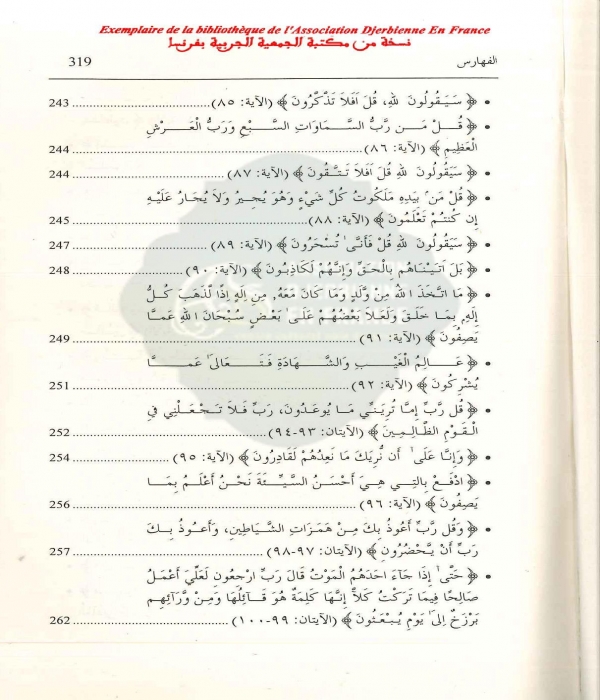 Exemplaire de la bibliothèque de l'Association Djerbienne En France
نسخة من مكتبة الجمعية الجربية بفرنسا
الفهارس 319
• ﴿ سَيَقُولُونَ لِلهِ، قُلَ اَفَلاَ تَذَّكَّرُونَ ﴾ (الآية: ٨٥) ........ 243
• ﴿ قُـلْ مَـن رَّبُّ السَّـمَاوَاتِ السَّـبْعِ وَرَبُّ الْعَـرْشِ
العَظِيمِ ﴾ (الآية: ٨٦) ........ 244
• ﴿ سَيَقُولُونَ لِلهِ قُلَ اَفَلاَ تَتَّقُونَ ﴾ (الآية: ٨٧) ........ 244
• ﴿ قُلْ مَنْ بِيَدِهِ مَلَكُوتُ كُلِّ شَيْءٍ وَهُوَ يُجِيرُ وَلاَ يُجَارُ عَلَيْهِ
إِن كُنتُمْ تَعْلَمُونَ ﴾ (الآية: ٨٨) ........ 245
• ﴿ سَيَقُولُونَ لِلهِ قُلْ فَأَنَّىٰ تُسْحَرُونَ ﴾ (الآية: ٨٩) ........ 247
• ﴿ بَلَ اَتَيْنَاهُم بِالْحَقِّ وَإِنَّهُمْ لَكَاذِبُونَ ﴾ (الآية: ٩٠) ........ 248
• ﴿ مَا اتَّخَذَ اللهُ مِنْ وَّلَدٍ وَمَا كَانَ مَعَهُ, مِنِ اِلَهٍ اِذًا لَّذَهَبَ كُـلُّ
إِلَهٍ, بِمَا خَلَقَ وَلَعَلاَ بَعْضُهُمْ عَلَىٰ بَعْضٍ سُبْحَانَ اللهِ عَمَّـا
يَصِفُونَ ﴾ (الآية: ٩١) ........ 249
• ﴿ عَـالِمُ الْغَيْـبِ وَالشَّـهَادَةِ فَـتَعَالَىٰ عَمَّـا
يُشْرِكُونَ ﴾ (الآية: ٩٢) ........ 251
• ﴿ قُل رَّبِّ إِمَّا تُرِيَنِّي مَا يُوعَدُونَ، رَبِّ فَلاَ تَجْعَلْنِي فِي
الْقَوْمِ الظَّالِمِينَ ﴾ (الآيتان: ٩٣-٩٤) ........ 252
• ﴿ وَإِنَّا عَلَىٰ أَن نُّرِيَكَ مَا نَعِدُهُمْ لَقَادِرُونَ ﴾ (الآية: ٩٥) ........ 254
• ﴿ ادْفَعْ بِالَّتِي هِيَ أَحْسَنُ السَّيِّئَةَ نَحْنُ أَعْلَمُ بِمَا
يَصِفُونَ ﴾ (الآية: ٩٦) ........ 256
• ﴿ وَقُل رَّبِّ أَعُوذُ بِكَ مِنْ هَمَزَاتِ الشَّيَاطِينِ، وَأَعُوذُ بِـكَ
رَبِّ أَنْ يَّحْضُرُونِ ﴾ (الآيتان: ٩٧-٩٨) ........ 257
• ﴿ حَتَّىٰ إِذَا جَآءَ احَدَهُمُ الْمَوْتُ قَالَ رَبِّ ارْجِعُونِ لَعَلِّيَ أَعْمَلُ
صَالِحًا فِيمَا تَرَكْتُ كَلاَّ إِنَّهَا كَلِمَةٌ هُوَ قَآئِلُهَا وَمِنْ وَّرَآئِهِم
بَرْزَخٌ اِلَىٰ يَوْمِ يُبْعَثُونَ ﴾ (الآيتان: ٩٩-١٠٠) ........ 262